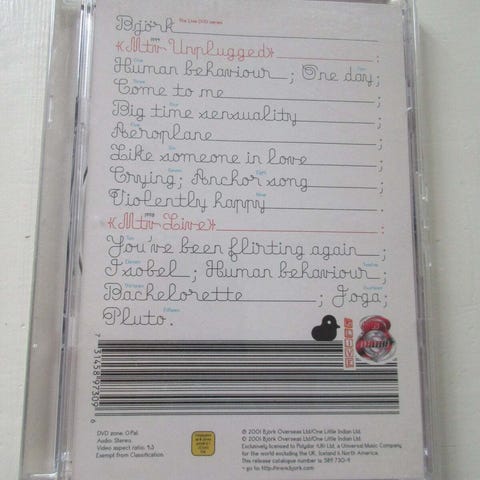 Björk The Live DVD series
1994
«Mtv Unplugged» :
One Two
Human behaviour ; One day;
Three
Come to me ;
Four
Big time sensuality ;
Five
Aeroplane ;
Six
Like someone in love ;
Seven Eight
Crying; Anchor song ;
Nine
Violently happy .
1998
«Mtv Live» :
Ten
You've been flirting again ;
Eleven Twelve
Isobel ; Human behaviour ;
Thirteen Fourteen
Bachelorette ; Joga;
Fifteen
Pluto.
7 314589 730 6
DVD zone: 0 Pal
Audio: Stereo
Video aspect ratio: 4:3
Exempt from Classification.
℗ 2001 Björk Overseas Ltd/One Little Indian Ltd.
© 2001 Björk Overseas Ltd/One Little Indian Ltd.
Exclusively licensed to Polydor (UK) Ltd, a Universal Music Company
for the world excluding the UK, Iceland & North America.
This release catalogue number is 589 730-9
- go to: http://www.bjork.com